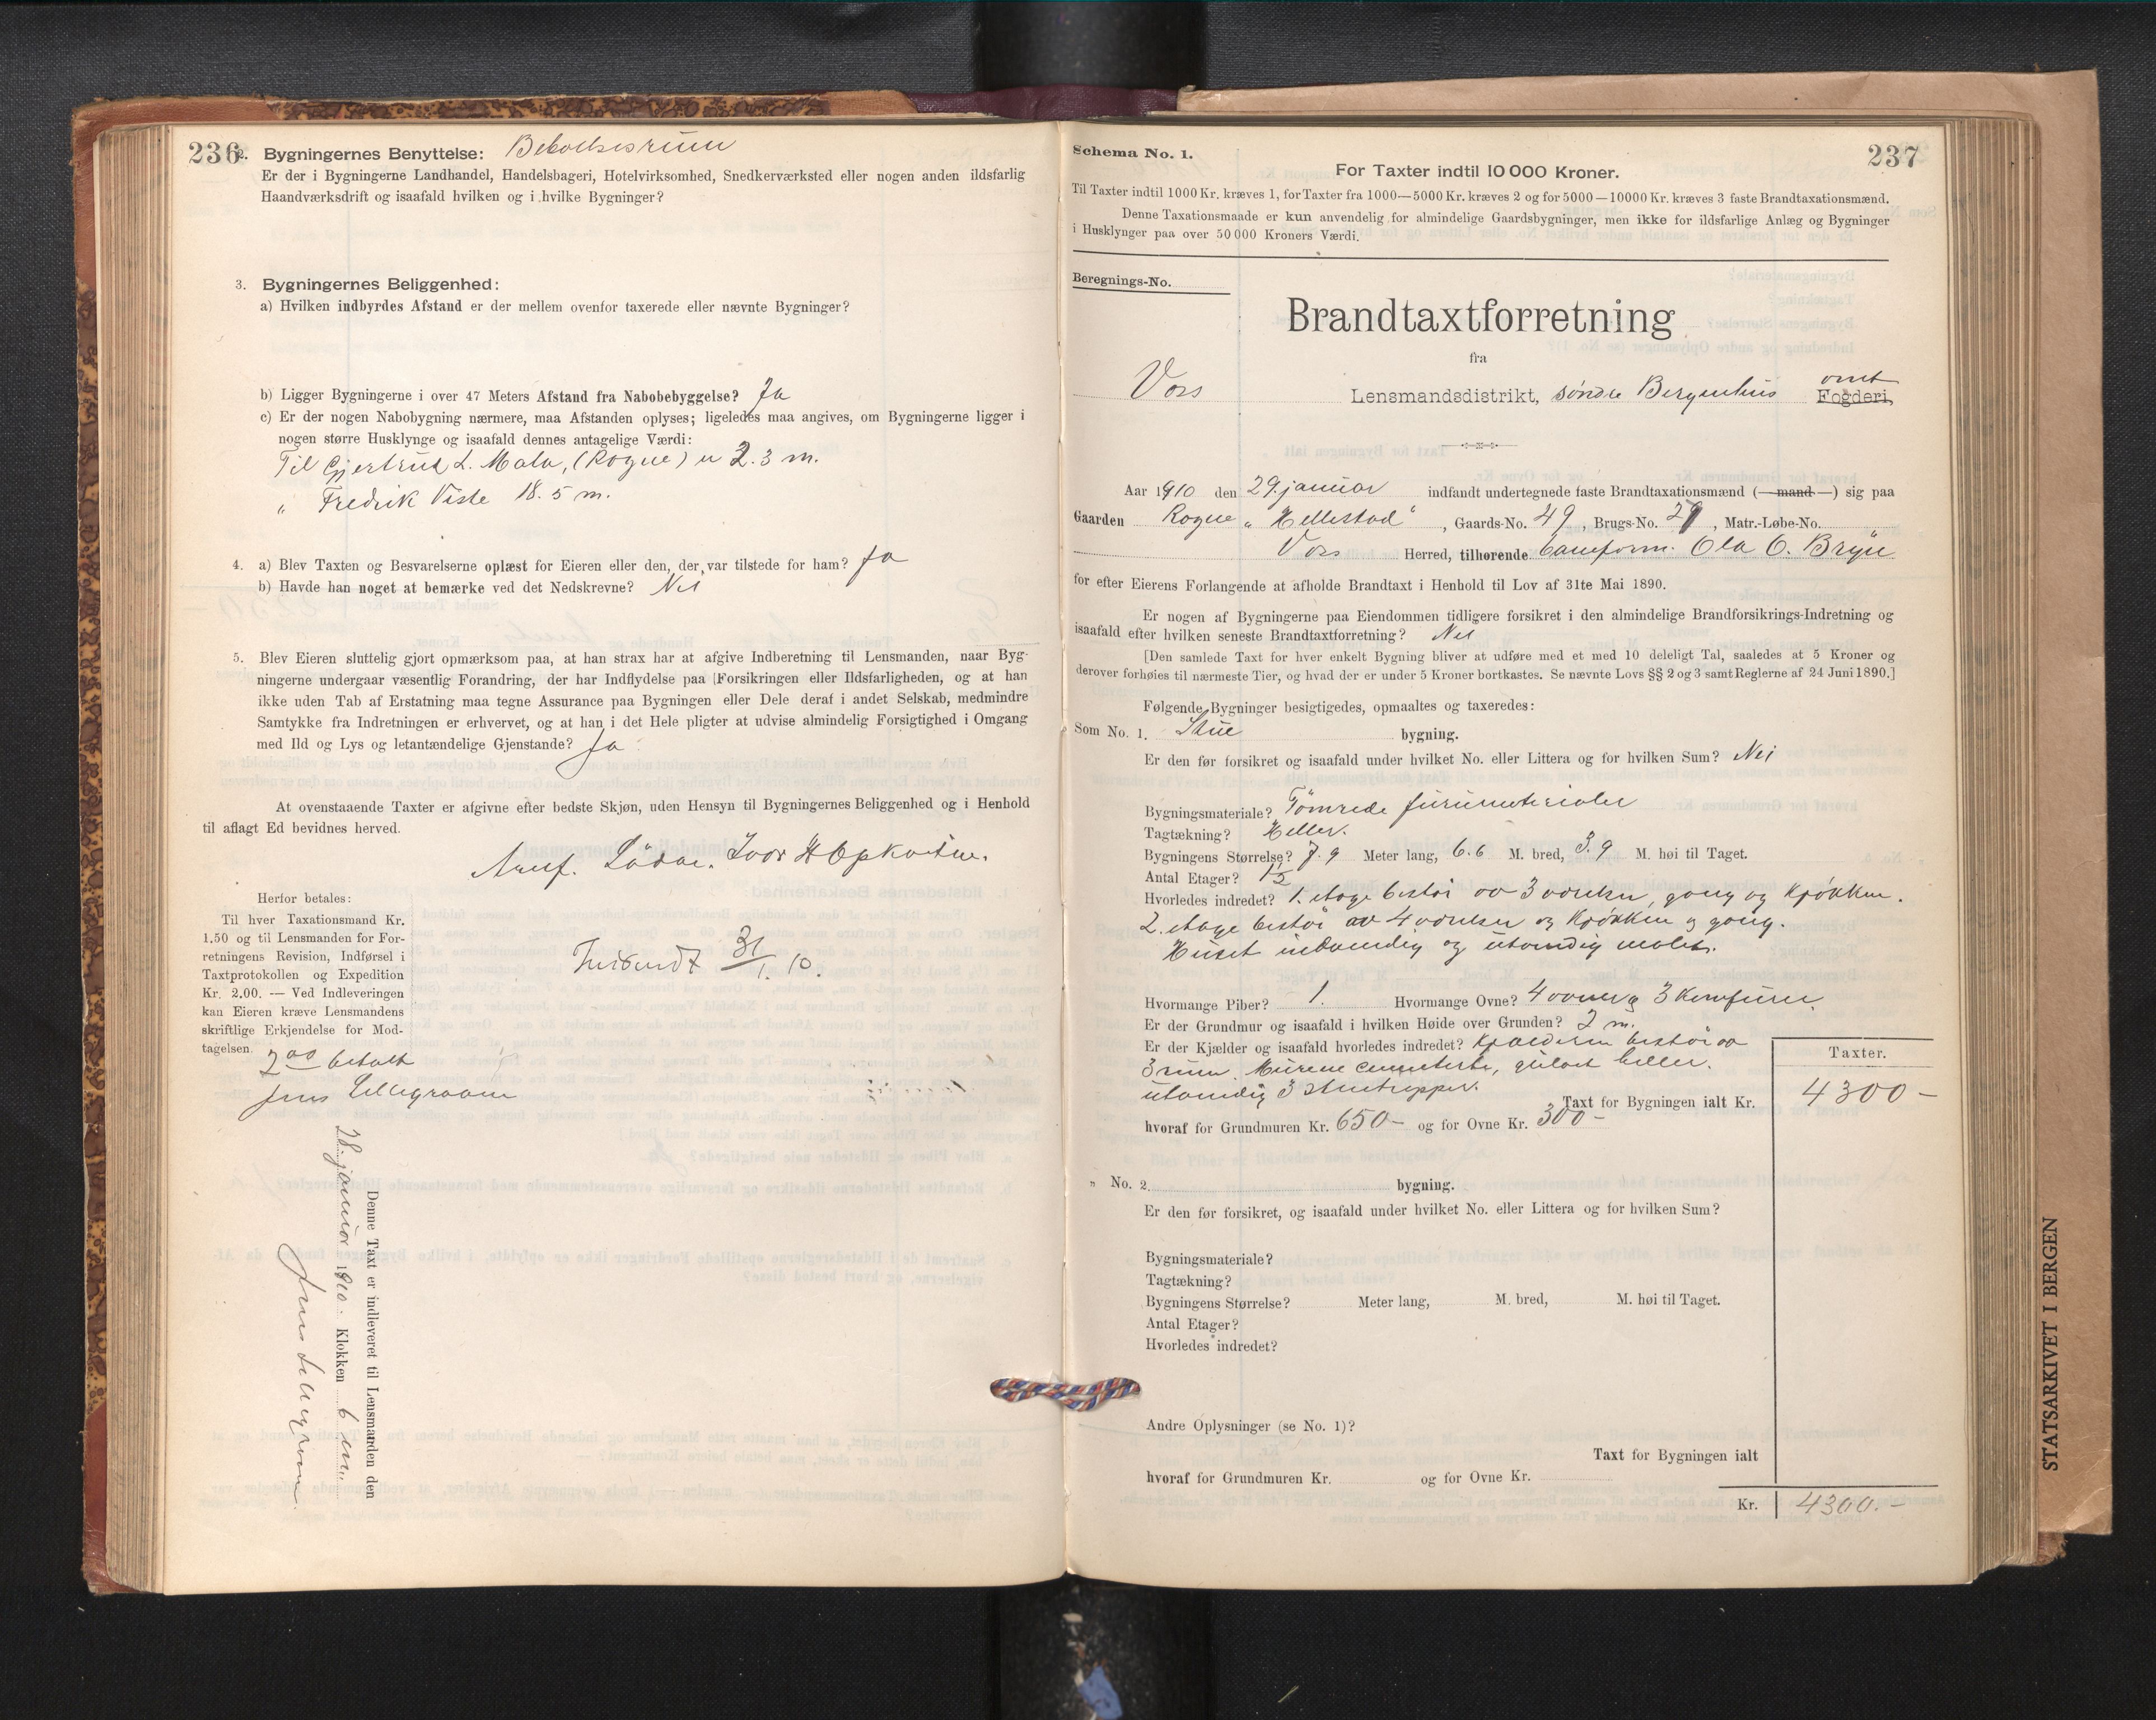 236
2. Bygningernes Benyttelse: Beboelsesrum
Er der i Bygningerne Landhandel, Handelsbageri, Hotelvirksomhed, Snedkerværksted eller nogen anden ildsfarlig
Haandværksdrift og isaafald hvilken og i hvilke Bygninger?
3. Bygningernes Beliggenhed:
a) Hvilken indbyrdes Afstand er der mellem ovenfor taxerede eller nævnte Bygninger?
b) Ligger Bygningerne i over 47 Meters Afstand fra Nabobebyggelse? Ja
c) Er der nogen Nabobygning nærmere, maa Afstanden oplyses; ligeledes maa angives, om Bygningerne ligger i
nogen større Husklynge og isaafald dennes antagelige Værdi:
Til Gjertrud L. (Rogne) 2.3 m.
" Fredrik Viste 18.5 m.
4. a) Blev Taxten og Besvarelserne oplæst for Eieren eller den, der var tilstede for ham? Ja
b) Havde han noget at bemærke ved det Nedskrevne? Nei
5. Blev Eieren sluttelig gjort opmærksom paa, at han strax har at afgive Indberetning til Lensmanden, naar Byg-
ningerne undergaar væsentlig Forandring, der har Indflydelse paa Forsikringen eller Ildsfarligheden, og at han
ikke uden Tab af Erstatning maa tegne Assurance paa Bygningen eller Dele deraf i andet Selskab, medmindre
Samtykke fra Indretningen er erhvervet, og at han i det Hele pligter at udvise almindelig Forsigtighed i Omgang
med Ild og Lys og letantændelige Gjenstande? Ja
At ovenstaaende Taxter er afgivne efter bedste Skjøn, uden Hensyn til Bygningernes Beliggenhed og i Henhold
til aflagt Ed bevidnes herved.
Herfor betales:
Til hver Taxationsmand Kr.
1.50 og til Lensmanden for For-
retningens Revision, Indførsel i
Taxtprotokollen og Expedition
Kr. 2.00. — Ved Indleveringen
kan Eieren kræve Lensmandens
skriftlige Erkjendelse for Mod-
tagelsen.
Indsendt 31/1. 10.
2 00 betalt
Jens Lillegraven
Denne Taxt er indleveret til Lensmanden den
28. januar 1910. Klokken 6 em.
Jens Lillegraven
237
Schema No. 1.
For Taxter indtil 10 000 Kroner.
Til Taxter indtil 1000 Kr. kræves 1, for Taxter fra 1000—5000 Kr. kræves 2 og for 5000—10000 Kr. kræves 3 faste Brandtaxationsmænd.
Denne Taxationsmaade er kun anvendelig for almindelige Gaardsbygninger, men ikke for ildsfarlige Anlæg og Bygninger
i Husklynger paa over 50 000 Kroners Værdi.
Beregnings-No.
Brandtaxtforretning
fra
Vors Lensmandsdistrikt, søndre Bergenhus amt Fogderi
Aar 1910 den 29. januar indfandt undertegnede faste Brandtaxationsmænd (—mand—) sig paa
Gaarden Rogne „ Hellestad“, Gaards-No. 49, Brugs-No. 29, Matr.-Løbe-No.
Vors Herred, tilhørende Ola O. Bryn
for efter Eierens Forlangende at afholde Brandtaxt i Henhold til Lov af 31te Mai 1890.
Er nogen af Bygningerne paa Eiendommen tidligere forsikret i den almindelige Brandforsikrings-Indretning og
isaafald efter hvilken seneste Brandtaxtforretning? Nei
[Den samlede Taxt for hver enkelt Bygning bliver at udføre med et med 10 deleligt Tal, saaledes at 5 Kroner og
derover forhøies til nærmeste Tier, og hvad der er under 5 Kroner bortkastes. Se nævnte Lovs §§ 2 og 3 samt Reglerne af 24 Juni 1890.]
Følgende Bygninger besigtigedes, opmaaltes og taxeredes:
Som No. 1. Stue bygning.
Er den før forsikret og isaafald under hvilket No. eller Littera og for hvilken Sum? Nei
Bygningsmateriale? Tømrede furumaterialer
Tagtækning? Heller.
Bygningens Størrelse? 7.9 Meter lang, 6.6 M. bred, 3.9 M. høi til Taget.
Antal Etager? 1½
Hvorledes indredet? 1. etage bestör av 3 værelser, gang og kjøkken.
2. etage bestör av 4 værelser og kjøkken og gang.
Huset indvendig og utvendig malet.
Hvormange Piber? 1. Hvormange Ovne? 4 ovner og 3 komfurer.
Er der Grundmur og isaafald i hvilken Høide over Grunden? 2 m.
Er der Kjælder og isaafald hvorledes indredet? Kjælderen bestör av
3 rum. Murene cementerte, gulvet heller.
utvendig 3 stentrapper.
Taxter.
Taxt for Bygningen ialt Kr. 4300 –
hvoraf for Grundmuren Kr. 650 – og for Ovne Kr. 300 –
„ No. 2. bygning.
Er den før forsikret, og isaafald under hvilket No. eller Littera og for hvilken Sum?
Bygningsmateriale?
Tagtækning?
Bygningens Størrelse? Meter lang, M. bred, M. høi til Taget.
Antal Etager?
Hvorledes indredet?
Andre Oplysninger (se No. 1)?
Taxt for Bygningen ialt
hvoraf for Grundmuren Kr. og for Ovne Kr.
Kr. 4300.–
STATSARKIVET I BERGEN